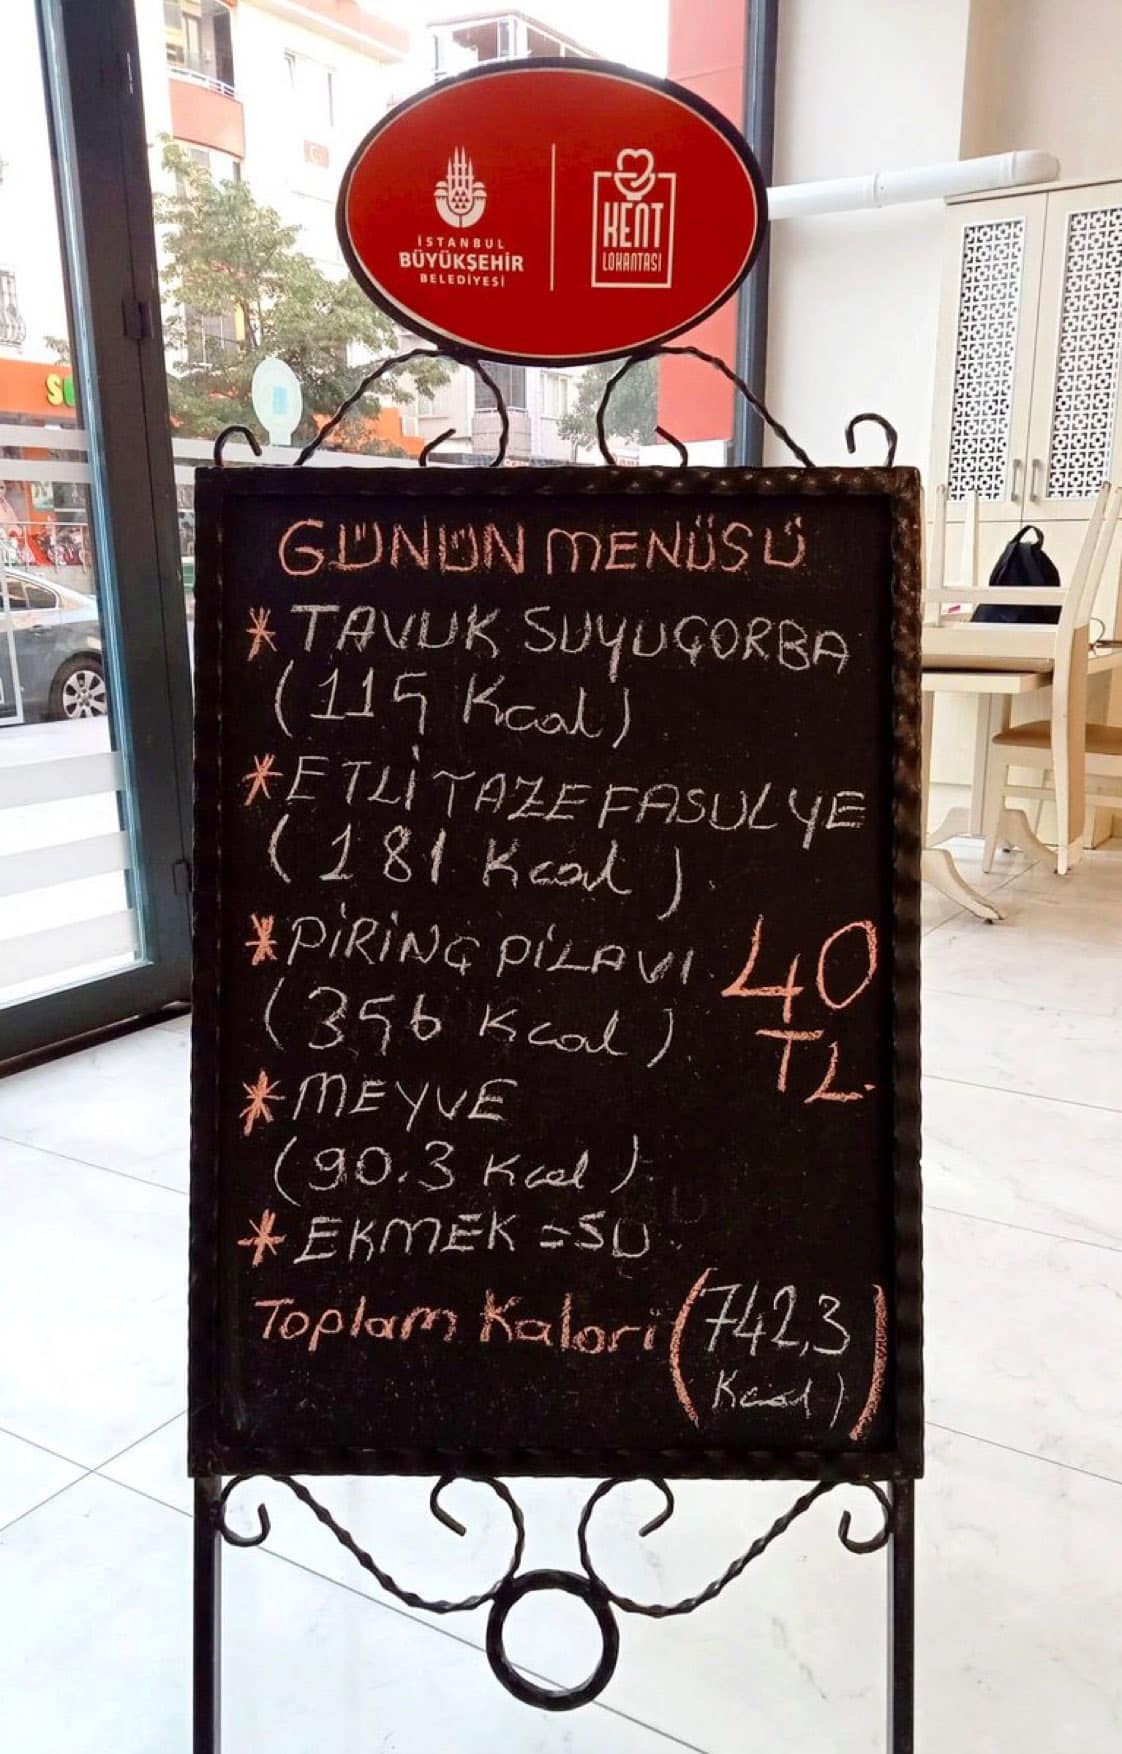 İSTANBUL
BÜYÜKŞEHİR
BELEDİYESİ
KENT
LOKANTASI
GÜNÜN MENÜSÜ
* TAVUK SUYUÇORBA
(115 Kcal)
* ETLİ TAZE FASULYE
(181 Kcal)
* PİRİNÇ PİLAVI
(356 Kcal)
40
TL.
* MEYVE
(90.3 Kcal)
* EKMEK = SU
Toplam Kalori (742,3
Kcal)